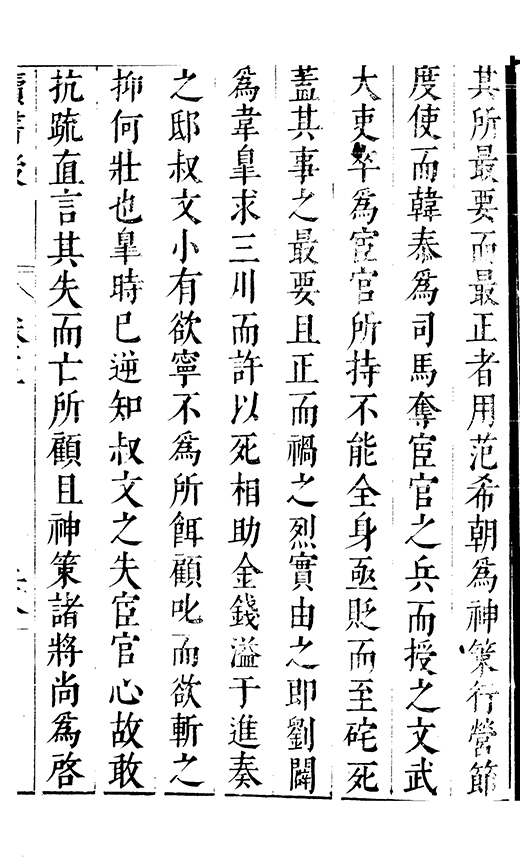 其所最要而最正者用范希朝為神策行營節
度使而韓泰為司馬奪宦官之兵而授之文武
大吏卒為宦官所持不能全身亟貶而至砣死
蓋其事之最要且正而禍之烈實由之即劉闢
為韋臯求三川而許以死相助金錢溢于進奏
之邸叔文小有欲寧不為所餌顧叱而欲斬之
抑何壯也臯時已逆知叔文之失宦官心故敢
抗疏直言其失而亡所顧且神策諸將尚為啓
讀書後